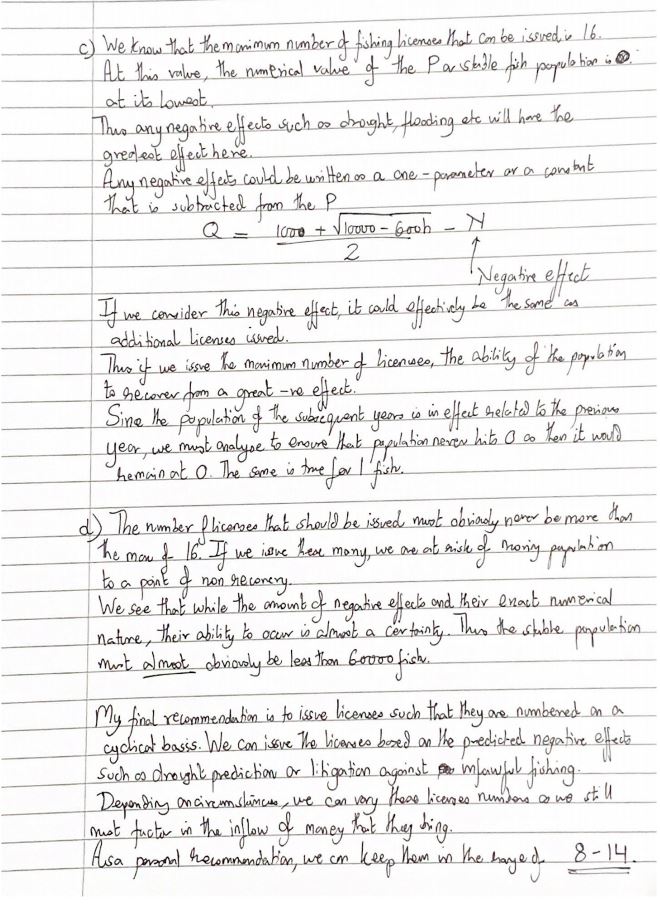 c) We know that the maximum number of fishing licenses that can be issued is 16.
At this value, the numerical value of the P or stable fish population is
at its lowest.
Thus any negative effects such as drought, flooding etc will have the
greatest effect here.
Any negative effects could be written as a one-parameter or a constant
that is subtracted from the P
Q = 1000 + √10000 - 600h - N
2
Negative effect
If we consider this negative effect, it could effectively be the same as
additional licenses issued.
Thus if we issue the maximum number of licenses, the ability of the population
to recover from a great -ve effect.
Since the population of the subsequent years is in effect related to the previous
year, we must analyse to ensure that population never hits 0 as then it would
remain at 0. The same is true for 1 fish.
d) The number of licenses that should be issued must obviously never be more than
the max of 16. If we issue these many, we are at risk of moving population
to a point of non recovery.
We see that while the amount of negative effects and their exact numerical
nature, their ability to occur is almost a certainty. Thus the stable population
must almost obviously be less than 60000 fish.
My final recommendation is to issue licenses such that they are numbered on a
cyclical basis. We can issue the licenses based on the predicted negative effects
such as drought prediction or litigation against unlawful fishing.
Depending on circumstances, we can vary these licenses numbers as we still
must factor in the inflow of money that they bring.
As a personal recommendation, we can keep them in the range of 8-14.